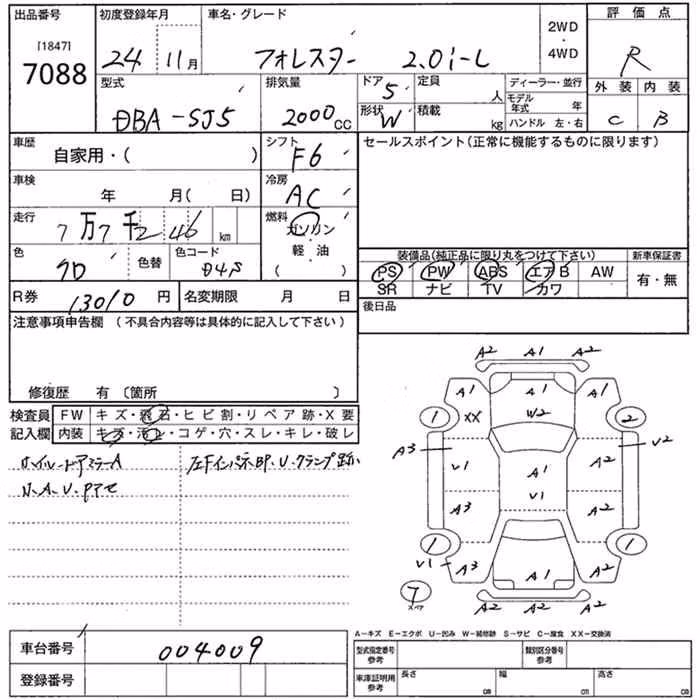 出品番号 初度登録年月 車名・グレード 2WD ・ 4WD 評価点
[1847] 7088 24 11月 フォレスター 2.0i-L R
型式 排気量 ドア 5 定員 人 ディーラー・並行 外装 内装
DBA-SJ5 2000cc 形状 W 積載 kg モデル年式 年 C B
ハンドル 左・右
車歴 シフト セールスポイント(正常に機能するものに限ります)
自家用・( ) F6
車検 冷房
年 月( 日) AC
走行 燃料
7万7千246 km ガソリン
色 色替 色コード 軽・油
クロ D4S ( )
装備品(純正品に限り丸をつけて下さい) 新車保証書
PS PW ABS エアB AW 有・無
SR ナビ TV カワ
R券 13010円 名変期限 月 日 後日品
注意事項申告欄 (不具合内容等は具体的に記入して下さい)
修復歴 有〔箇所 〕
検査員 FW キズ・飛石・ヒビ割・リペア跡・X要
記入欄 内装 キズ・汚レ・コゲ・穴・スレ・キレ・破レ
ホイル・ドアミラーA
小A.U.Pアセ
A2 A1 A2
A1 A1 A1
XX W2
1 2
A3 V2
V1 A1 A2
V1
A3 A2
1 1
V1 A3 A1 A2
7 スペア
A2 A2 A2
A-キズ E-エクボ U-凹み W-補修跡 S-サビ C-腐食 XX-交換済
車台番号 004009 型式指定番号 参考 類別区分番号 参考
登録番号 車庫証明用 参考 長さ cm 幅 cm 高さ cm